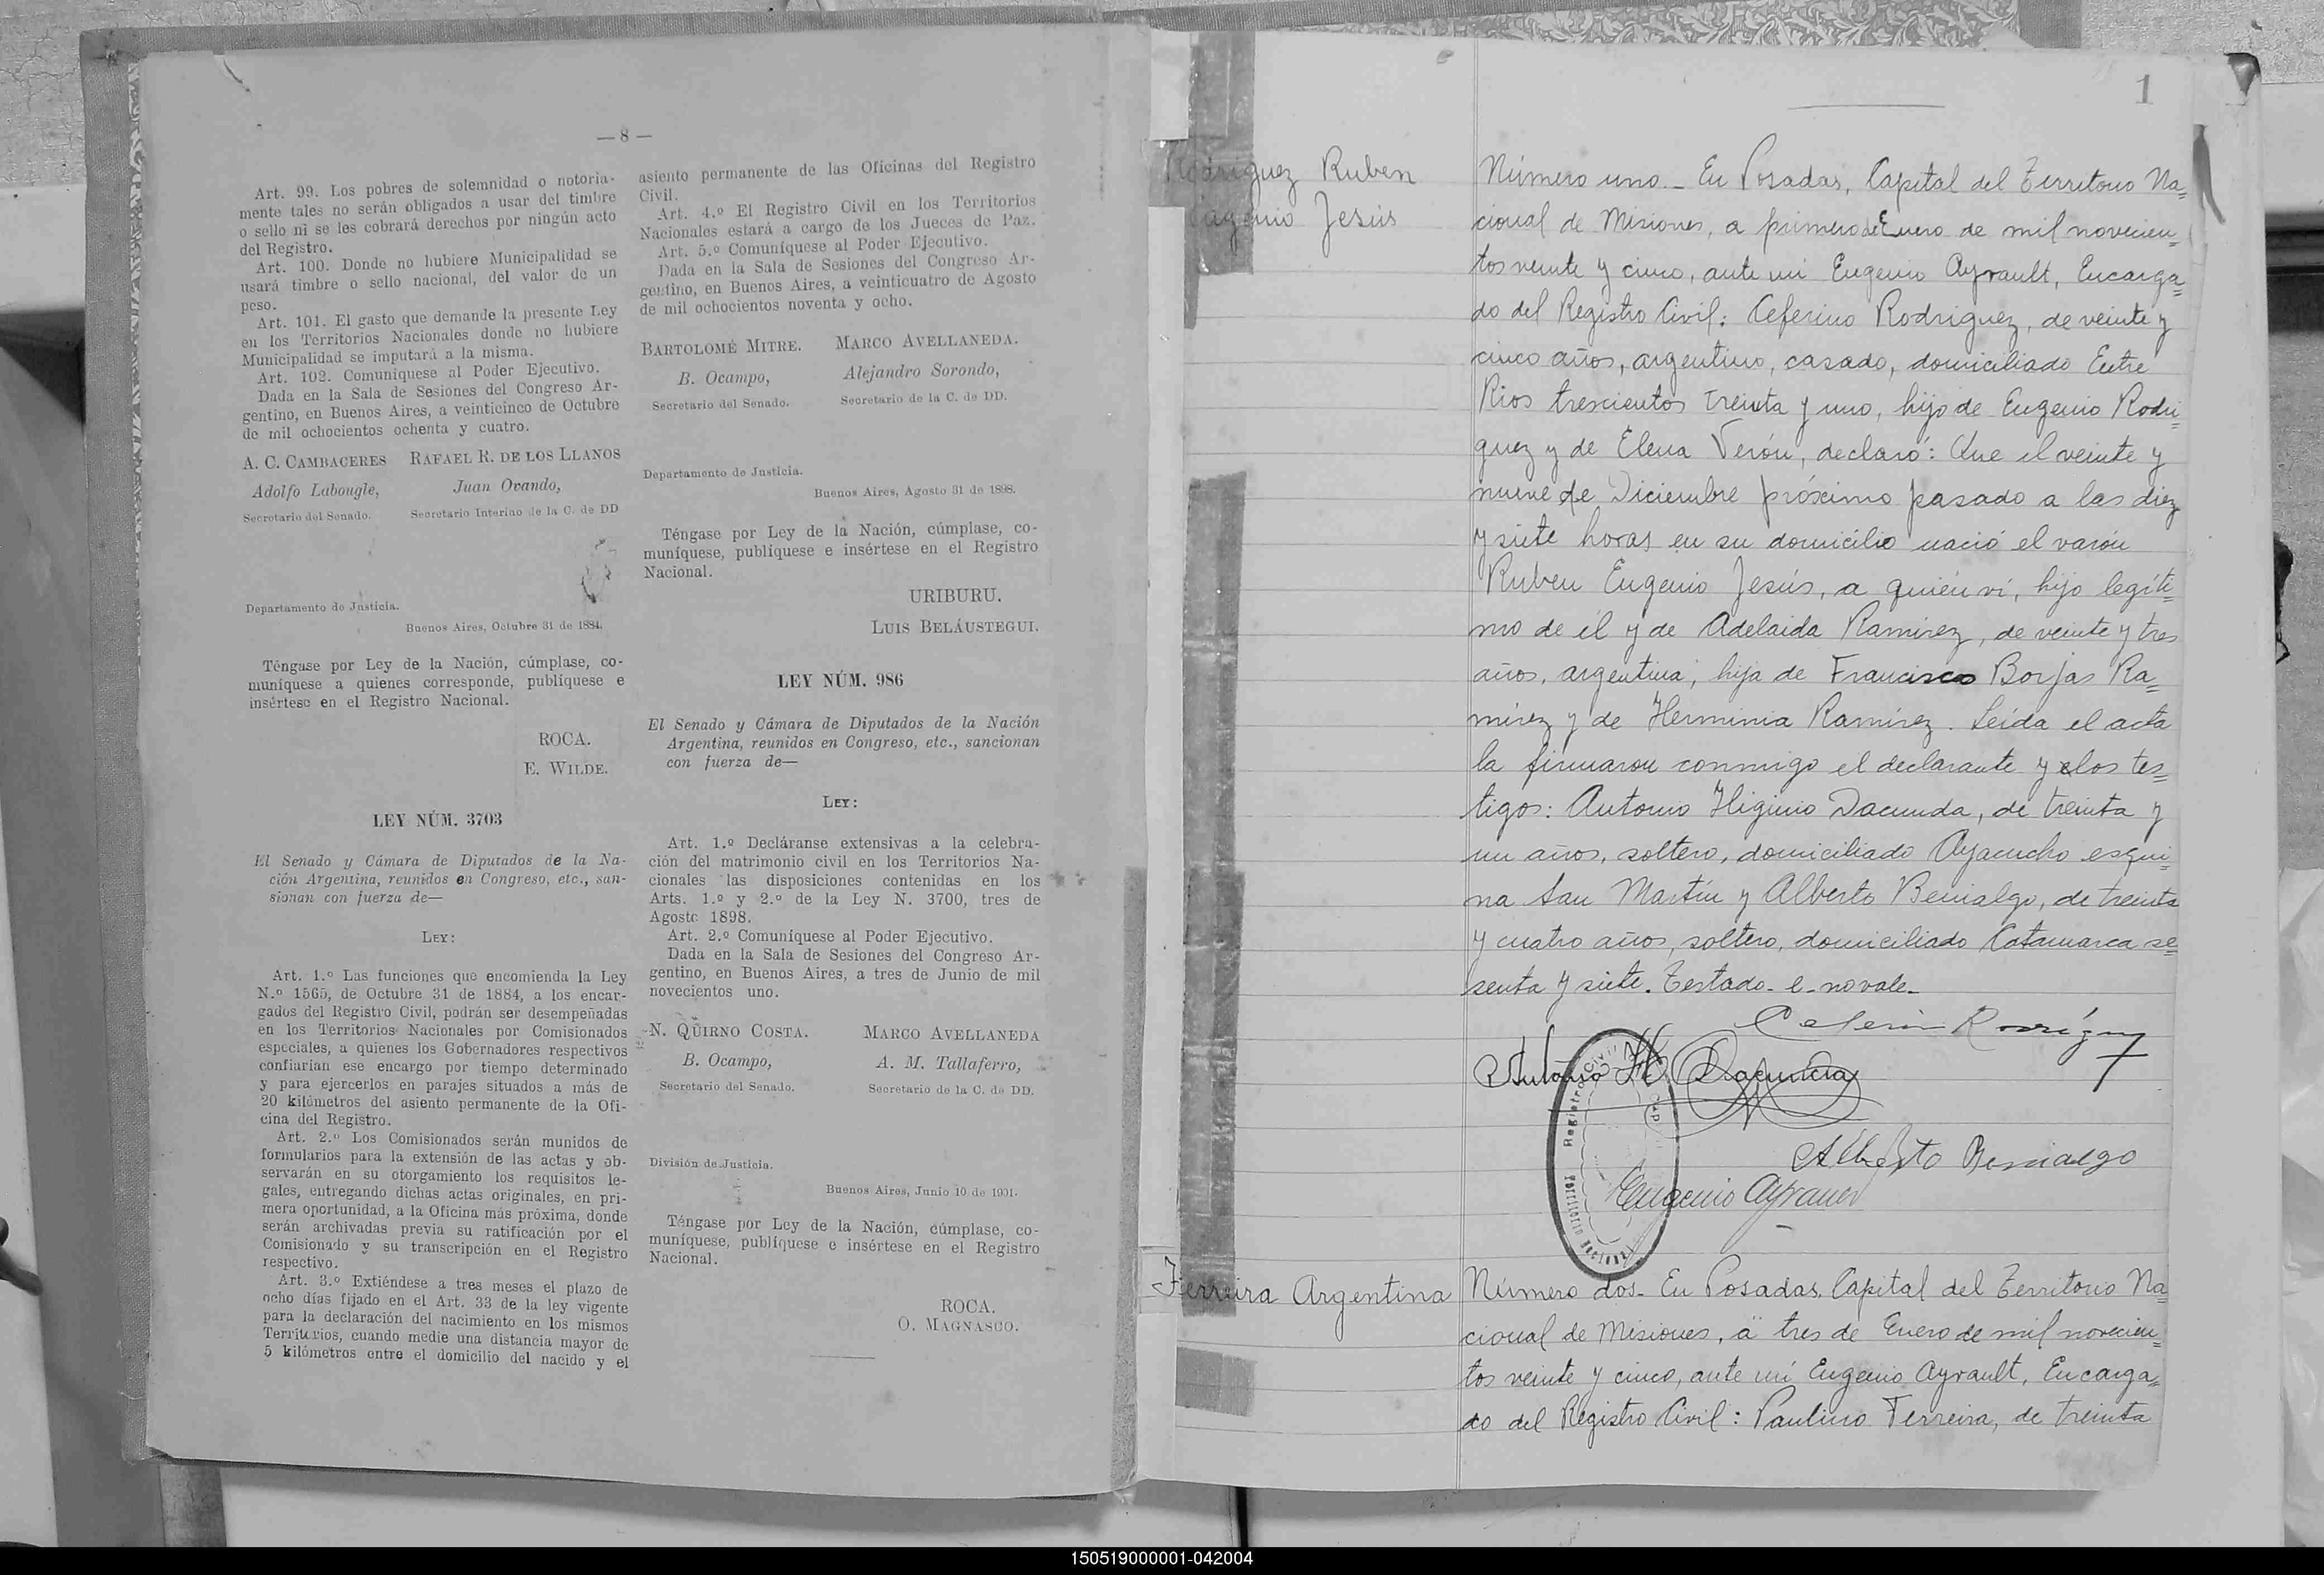 — 8 —
Art. 99. Los pobres de solemnidad o notoria-
mente tales no serán obligados a usar del timbre
o sello ni se les cobrará derechos por ningún acto
del Registro.
Art. 100. Donde no hubiere Municipalidad se
usará timbre o sello nacional, del valor de un
peso.
Art. 101. El gasto que demande la presente Ley
en los Territorios Nacionales donde no hubiere
Municipalidad se imputará a la misma.
Art. 102. Comuníquese al Poder Ejecutivo.
Dada en la Sala de Sesiones del Congreso Ar-
gentino, en Buenos Aires, a veinticinco de Octubre
de mil ochocientos ochenta y cuatro.
A. C. CAMBACERES RAFAEL R. DE LOS LLANOS
Adolfo Labougle, Juan Ovando,
Secretario del Senado. Secretario Interino de la C. de DD
Departamento de Justicia.
Buenos Aires, Octubre 31 de 1884.
Téngase por Ley de la Nación, cúmplase, co-
muníquese a quienes corresponde, publíquese e
insértese en el Registro Nacional.
ROCA.
E. WILDE.
LEY NÚM. 3703
El Senado y Cámara de Diputados de la Na-
ción Argentina, reunidos en Congreso, etc., san-
sionan con fuerza de—
LEY:
Art. 1.º Las funciones que encomienda la Ley
N.º 1565, de Octubre 31 de 1884, a los encar-
gados del Registro Civil, podrán ser desempeñadas
en los Territorios Nacionales por Comisionados
especiales, a quienes los Gobernadores respectivos
confiarían ese encargo por tiempo determinado
y para ejercerlos en parajes situados a más de
20 kilómetros del asiento permanente de la Ofi-
cina del Registro.
Art. 2.º Los Comisionados serán munidos de
formularios para la extensión de las actas y ob-
servarán en su otorgamiento los requisitos le-
gales, entregando dichas actas originales, en pri-
mera oportunidad, a la Oficina más próxima, donde
serán archivadas previa su ratificación por el
Comisionado y su transcripción en el Registro
respectivo.
Art. 3.º Extiéndese a tres meses el plazo de
ocho días fijado en el Art. 33 de la ley vigente
para la declaración del nacimiento en los mismos
Territorios, cuando medie una distancia mayor de
5 kilómetros entre el domicilio del nacido y el
asiento permanente de las Oficinas del Registro
Civil.
Art. 4.º El Registro Civil en los Territorios
Nacionales estará a cargo de los Jueces de Paz.
Art. 5.º Comuníquese al Poder Ejecutivo.
Dada en la Sala de Sesiones del Congreso Ar-
gentino, en Buenos Aires, a veinticuatro de Agosto
de mil ochocientos noventa y ocho.
BARTOLOMÉ MITRE. MARCO AVELLANEDA.
B. Ocampo, Alejandro Sorondo,
Secretario del Senado. Secretario de la C. de DD.
Departamento de Justicia.
Buenos Aires, Agosto 31 de 1898.
Téngase por Ley de la Nación, cúmplase, co-
muníquese, publíquese e insértese en el Registro
Nacional.
URIBURU.
LUIS BELÁUSTEGUI.
LEY NÚM. 986
El Senado y Cámara de Diputados de la Nación
Argentina, reunidos en Congreso, etc., sancionan
con fuerza de—
LEY:
Art. 1.º Decláranse extensivas a la celebra-
ción del matrimonio civil en los Territorios Na-
cionales las disposiciones contenidas en los
Arts. 1.º y 2.º de la Ley N. 3700, tres de
Agosto 1898.
Art. 2.º Comuníquese al Poder Ejecutivo.
Dada en la Sala de Sesiones del Congreso Ar-
gentino, en Buenos Aires, a tres de Junio de mil
novecientos uno.
N. QUIRNO COSTA. MARCO AVELLANEDA
B. Ocampo, A. M. Tallaferro,
Secretario del Senado. Secretario de la C. de DD.
División de Justicia.
Buenos Aires, Junio 10 de 1901.
Téngase por Ley de la Nación, cúmplase, co-
muníquese, publíquese e insértese en el Registro
Nacional.
ROCA.
O. MAGNASCO.
1
Rodriguez Ruben
Eugenio Jesús
Número uno._ En Posadas, Capital del Territorio Na=
cional de Misiones, a primero de Enero de mil novecien=
tos veinte y cinco, ante mi Eugenio Ayrault, Encarga=
do del Registro Civil: Ceferino Rodriguez, de veinte y
cinco años, argentino, casado, domiciliado Entre
Rios trescientos treinta y uno, hijo de Eugenio Rodri=
guez y de Elena Verón, declaró: Que el veinte y
nueve de Diciembre próximo pasado a las diez
y siete horas en su domicilio nació el varón
Ruben Eugenio Jesús, a quién ví, hijo legíti=
mo de él y de Adelaida Ramirez, de veinte y tres
años, argentina, hija de Francisco Borjas Ra=
mírez y de Herminia Ramírez. Leída el acta
la firmaron conmigo el declarante y elos tes=
tigos: Antonio Higinio Dacunda, de treinta y
un años, soltero, domiciliado Ayacucho esqui=
na San Martín y Alberto Benialgo, de treinta
y cuatro años, soltero, domiciliado Catamarca se=
senta y siete. Testado- e- no vale-
Ceferin Rodríguez
Antonio H. Dacunda
Alberto Benialgo
Eugenio Ayrault
Registro Civil
Territorio Nacional
Ferreira Argentina
Número dos- En Posadas, Capital del Territorio Na=
cional de Misiones, a tres de Enero de mil novecien=
tos veinte y cinco, ante mí Eugenio Ayrault, Encarga=
do del Registro Civil: Paulino Ferreira, de treinta
150519000001-042004